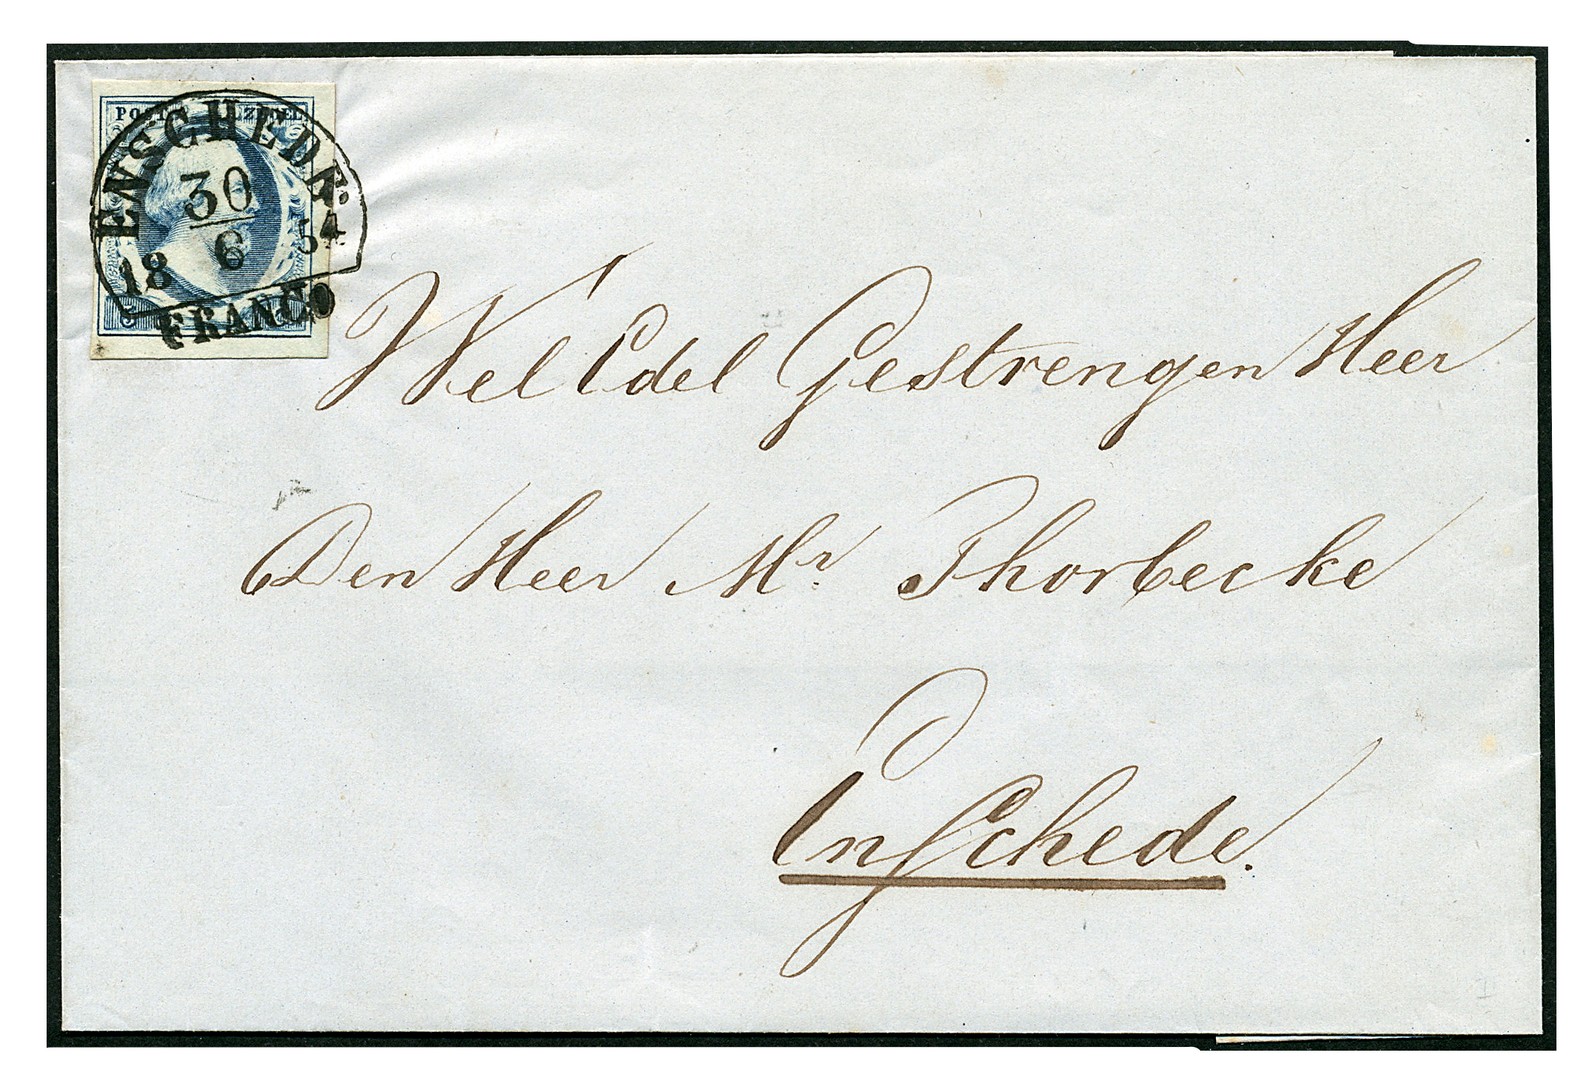 POST ZEGEL
ENSCHEDE.
30
18 6 54
FRANCO
5
Wel Edel Gestrengen Heer
Den Heer Mr. Thorbecke
Enschede.